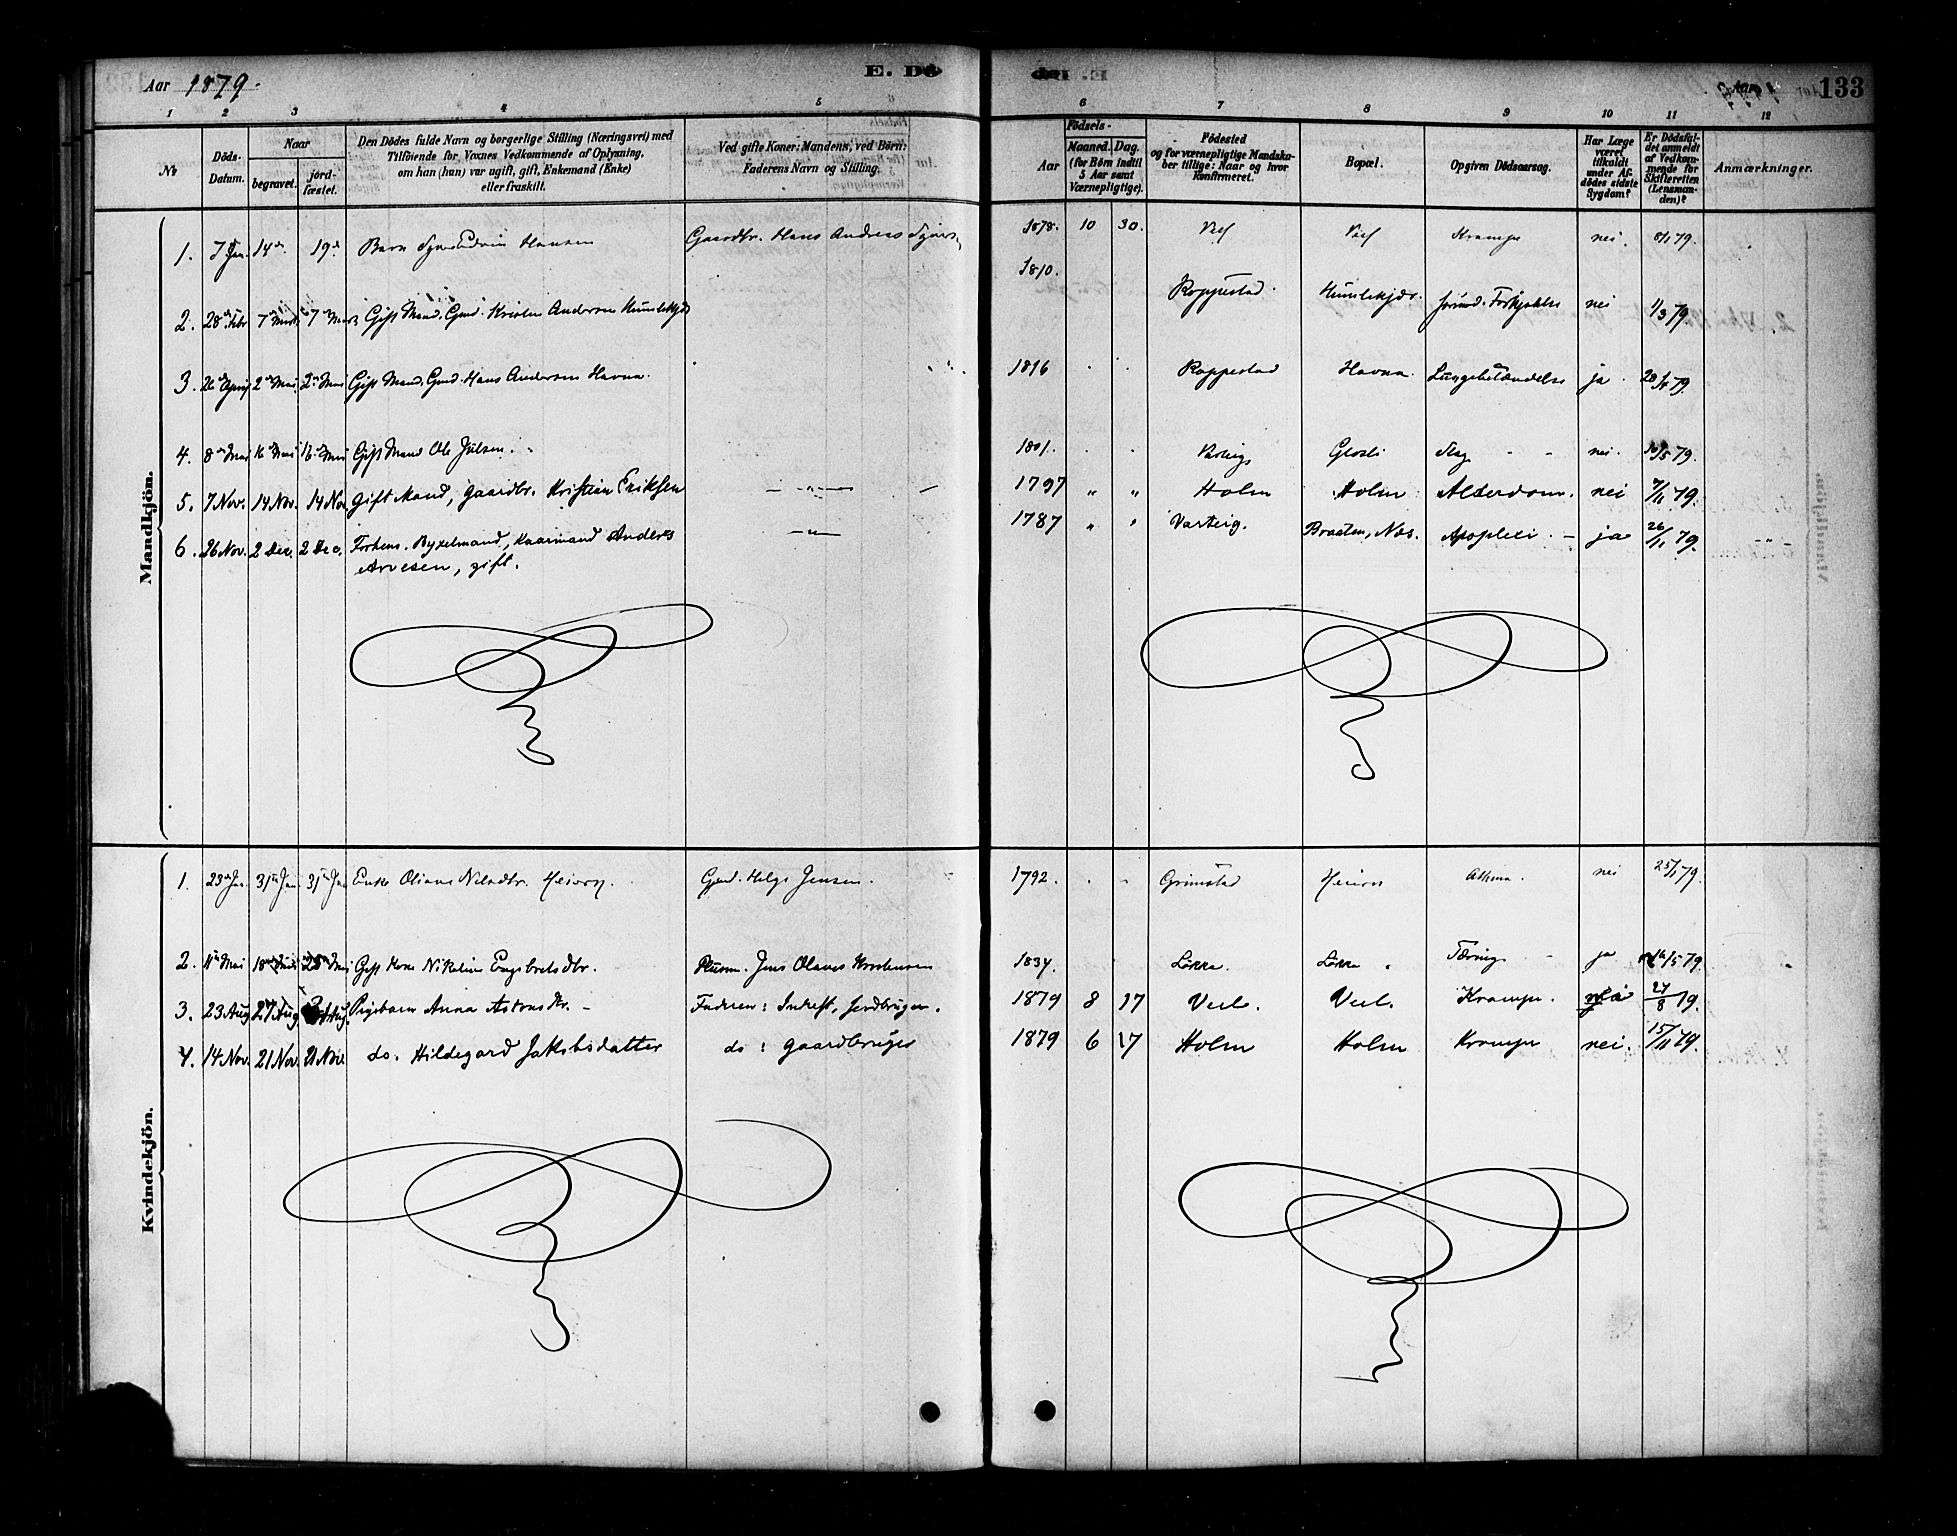 Aar 1879.
E. Dö
133
1 2 3 4 5 6 7 8 9 10 11 12
№
Döds-
Datum.
Naar
begravet.
jord-
fæstet.
Den Dödes fulde Navn og borgerlige Stilling (Næringsvei) med
Tilföiende for Voxnes Vedkommende af Oplysning,
om han (hun) var ugift, gift, Enkemand (Enke)
eller fraskilt.
Ved gifte Koner: Mandens, ved Börn:
Faderens Navn og Stilling.
Födsels-
Aar
Maaned. Dag.
(for Börn indtil
5 Aar samt
Værnepligtige).
Födested
og for værnepligtige Mandska-
ber tillige: Naar og hvor
Konfirmeret.
Bopæl.
Opgiven Dödsaarsag.
Har Læge
været
tilkaldt
under Af-
dödes sidste
Sygdom?
Er Dödsfal-
det anmeldt
af Vedkom-
mende for
Skifteretten
(Lensman-
den)?
Anmærkninger.
Mandkjön.
1. 7 Jan. 14de 19de Barn Edvin Hansen Gaardbr. Hans Andreas 1878. 10 30. Krampe nei. 8/1 79.
2. 28de Febr 7de Marts 7de Marts Gift Mand. Gmd. Kristen Andersen Humlekjær 1810. Roppestad Humlekjær. nei 1/3 79.
3. 26de April 2den Mai 2den Mai Gift Mand. Gmd. Hans Andersen Havna. 1816 Roppestad Havna. Lungebetændelse ja 28/4 79.
4. 8de Mai 16de Mai 16de Mai Gift Mand Ole Julsen. 1801. Glosli Slag nei. 10/5 79.
5. 7 Nov. 14 Nov. 14 Nov. Gift Mand, Gaardbr. Kristian Eriksen — „ — — 1797 „ „ Holm Holm Alderdom. nei 7/11 79.
6. 26 Nov. 2 Dec. 2 Dec. Forhens. Byxelmand, Kaarmand Anders — „ — 1787 „ „ Varteig. Braaten, Næs. Apoplexi. — ja 26/11 79.
Arvesen, gift.
Kvindekjön.
1. 23de Jan. 31te Jan 31te Jan Enke Oliane Nilsdtr. Gmd. Helge Jensen. 1792. Grimstad Asthma. nei 25/1 79.
2. 11te Mai 18de Mai 25de Mai Gift Kone Nikoline Engebretsdtr. Husm. Jens Olaves 1834. Løkka. Løkka Tæring ja 16/5 79.
3. 23 Aug 27 Aug Pigebarn Anna Astonsdtr. — Faderen: Indrest, Jordbruger. 1879 8 17 Veel. Veel. Krampe. 27/8 79.
4. 14 Nov. 21 Nov. 21 Nov. do. Hildegard Jakobsdatter do: Gaardbruger 1879 6 17 Holm Holm Krampe nei. 15/11 79.